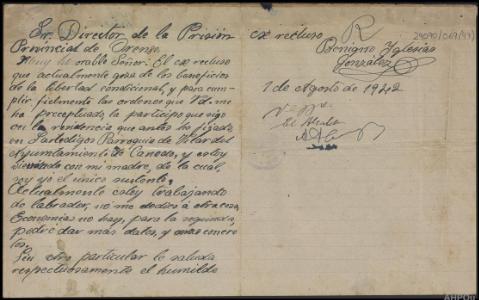 Sr. Director de la Prisión
Provincial de Orense
Muy honorable Señor: El ex recluso
que actualmente goza de los beneficios
de la libertad condicional, y para cum-
plir fielmente las ordenes que Vd. me
ha preceptuado, le participo que sigo
en la residencia que antes he fijado
en Parroquia de Vilar del
Ayuntamiento de Canedo, y estoy
viviendo con mi madre, de la cual,
soy yo el único sustento,
Actualmente estoy trabajando
de labrador, no me dedico a otra cosa,
Economías no hay, para la
podré dar más datos, y mas concre
tos,
Sin otro particular le saluda
respectuosamente el humilde
ex recluso
Benigno Yglesias
González
1 de Agosto de 1942
Vº Bº
El Alcalde
R
29090/069(47)
AHPOu